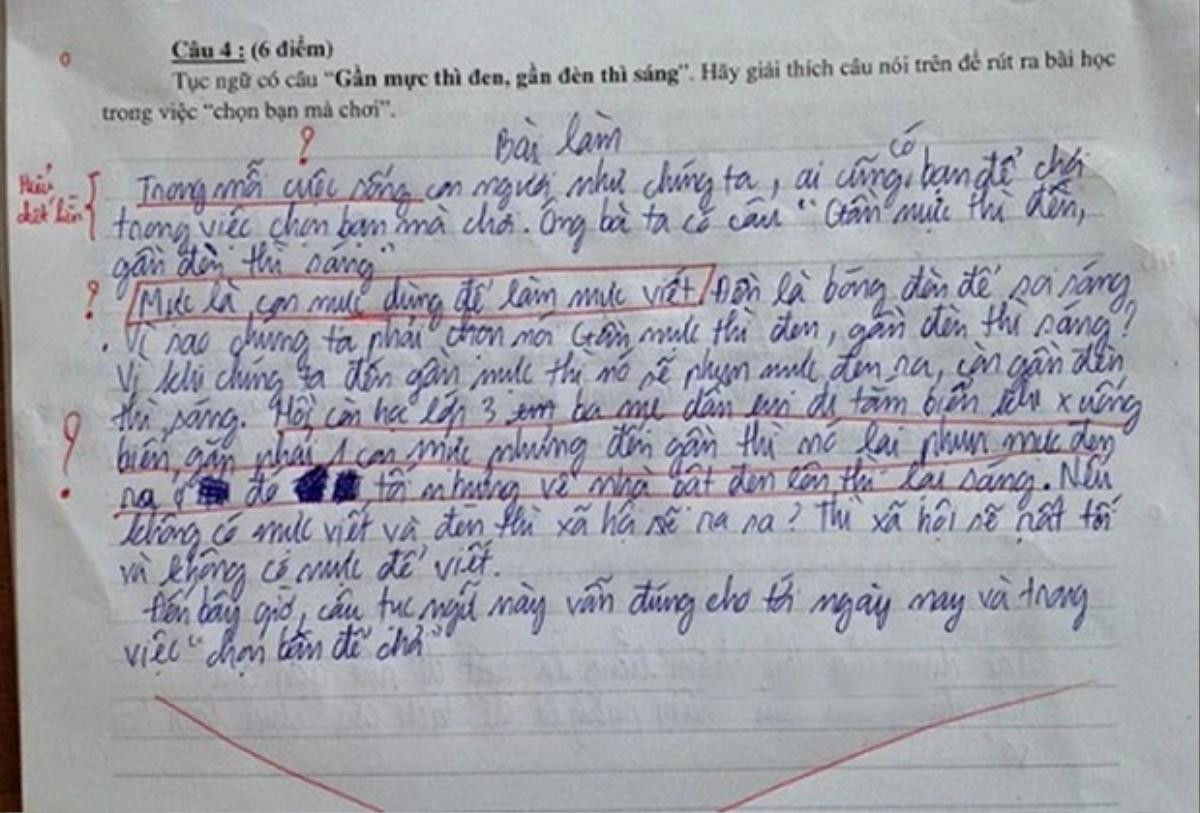 Câu 4 : (6 điểm)
Tục ngữ có câu “Gần mực thì đen, gần đèn thì sáng”. Hãy giải thích câu nói trên để rút ra bài học
trong việc “chọn bạn mà chơi”.
?
Bài làm
có
Trong mỗi cuộc sống con người như chúng ta, ai cũng bạn để chơi
trong việc chọn bạn mà chơi. Ông bà ta có câu “Gần mực thì đến,
gần đèn thì sáng”
? Mực là con mực dùng để làm mực viết Đèn là bóng đèn để soi sáng
. Vì sao chúng ta phải chọn nói Gần mực thì đen, gần đèn thì sáng?
Vì khi chúng ta đến gần mực thì nó sẽ phun mực đen ra, còn gần đèn
thì sáng. Hồi còn học lớp 3 em ba mẹ dẫn em đi tắm biển khi xuống
? biển, gặp phải 1 con mực nhưng đến gần thì nó lại phun mực đen
ra ở đó tối nhưng về nhà bật đèn lên thì lại sáng. Nếu
không có mực viết và đèn thì xã hội sẽ ra sa? Thì xã hội sẽ rất tối
và không có mực để viết.
Đến bây giờ, câu tục ngữ này vẫn đúng cho tới ngày nay và trong
việc “chọn bạn để chơi”